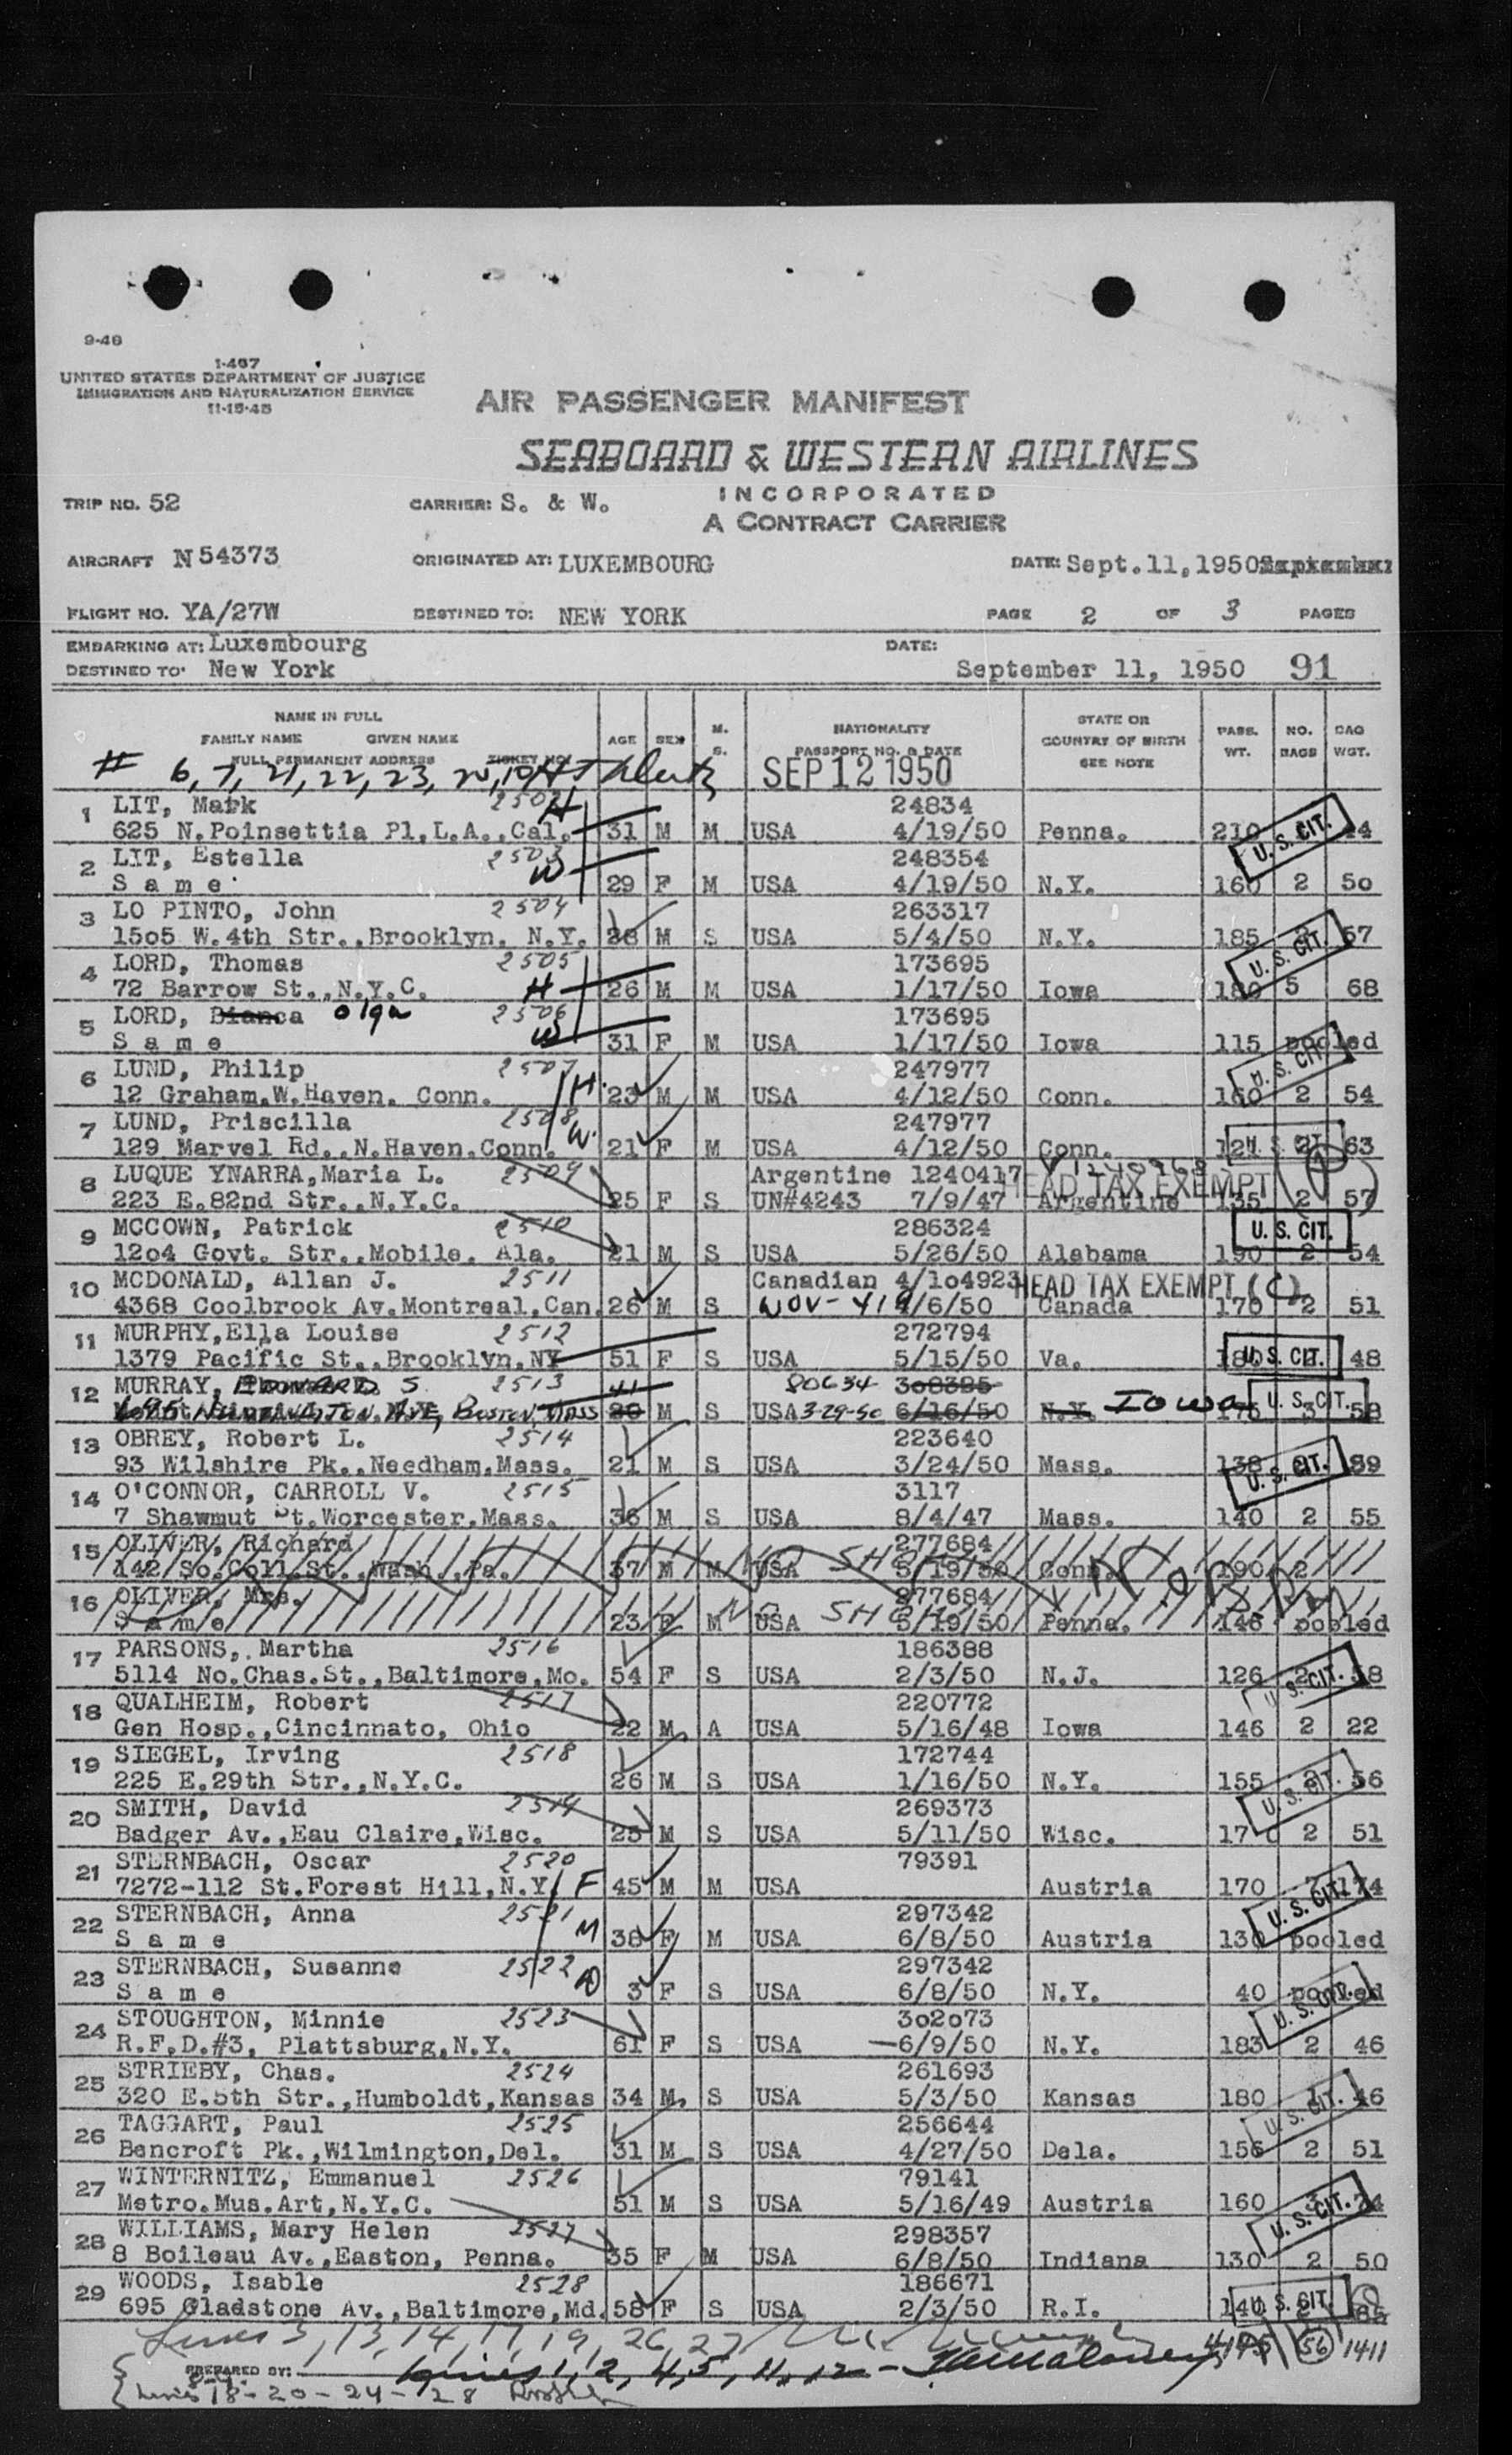 9-46
I-467
UNITED STATES DEPARTMENT OF JUSTICE
IMMIGRATION AND NATURALIZATION SERVICE
11-15-45
AIR PASSENGER MANIFEST
SEABOARD & WESTERN AIRLINES
INCORPORATED
A CONTRACT CARRIER
TRIP NO. 52 CARRIER: S. & W.
AIRCRAFT N 54373 ORIGINATED AT: LUXEMBOURG DATE: Sept.11,1950
FLIGHT NO. YA/27W DESTINED TO: NEW YORK PAGE 2 OF 3 PAGES
EMBARKING AT: Luxembourg DATE:
DESTINED TO: New York September 11, 1950 91
NAME IN FULL
FAMILY NAME GIVEN NAME
FULL PERMANENT ADDRESS TICKET NO. AGE SEX M. S. NATIONALITY PASSPORT NO. & DATE STATE OR COUNTRY OF BIRTH SEE NOTE PASS. WT. NO. BAGS BAG WGT.
# 6, 7, 21, 22, 23, SEP 12 1950
1 LIT, Mark 2502 H 24834
625 N.Poinsettia Pl,L.A.,Cal. 31 M M USA 4/19/50 Penna. 210 U.S. CIT. 44
2 LIT, Estella 2503 W 248354
S a m e 29 F M USA 4/19/50 N.Y. 160 2 50
3 LO PINTO, John 2504 263317
1505 W.4th Str.,Brooklyn, N.Y. 28 M S USA 5/4/50 N.Y. 185 U.S. CIT. 57
4 LORD, Thomas 2505 173695
72 Barrow St.,N.Y.C. H 26 M M USA 1/17/50 Iowa 180 5 68
5 LORD, Bianca Olga 2506 173695
S a m e W 31 F M USA 1/17/50 Iowa 115 pooled
6 LUND, Philip 2507 247977 U.S. CIT.
12 Graham,W.Haven. Conn. H. 23 M M USA 4/12/50 Conn. 160 2 54
7 LUND, Priscilla 2508 W. 247977
129 Marvel Rd.,N.Haven,Conn. 21 F M USA 4/12/50 Conn. U.S. CIT. 63
8 LUQUE YNARRA,Maria L. 2509 Argentine 1240417 HEAD TAX EXEMPT
223 E.82nd Str.,N.Y.C. 25 F S UN#4243 7/9/47 Argentine 135 2 57
9 MCCOWN, Patrick 2510 286324 U.S. CIT.
1204 Govt. Str.,Mobile. Ala. 21 M S USA 5/26/50 Alabama 190 2 54
10 MCDONALD, Allan J. 2511 Canadian 4/104923 HEAD TAX EXEMPT (C)
4368 Coolbrook Av.Montreal,Can. 26 M S 4/6/50 Canada 170 2 51
11 MURPHY,Ella Louise 2512 272794
1379 Pacific St.,Brooklyn,NY 51 F S USA 5/15/50 Va. 180 U.S. CIT. 48
12 MURRAY, EDWARD S. 2513 41 80634 308395
HUNTINGTON AVE, BOSTON, MASS M S USA 3-29-50 6/16/50 N.Y. Iowa 175 3 U.S. CIT. 58
13 OBREY, Robert L. 2514 223640
93 Wilshire Pk.,Needham,Mass. 21 M S USA 3/24/50 Mass. 138 U.S. CIT. 39
14 O'CONNOR, CARROLL V. 2515 3117
7 Shawmut St.Worcester,Mass. 36 M S USA 8/4/47 Mass. 140 2 55
15 OLIVER, Richard 277684
142 So.Coll.St.,Wash.,Pa. 37 M M USA NO SHOW 5/19/50 Conn. 190 2
16 OLIVER, Mrs. 277684
S a m e 23 F M USA NO SHOW 5/19/50 Penna. 146 pooled
17 PARSONS, Martha 2516 186388
5114 No.Chas.St.,Baltimore,Mo. 54 F S USA 2/3/50 N.J. 126 2 U.S. CIT. 58
18 QUALHEIM, Robert 2517 220772
Gen Hosp.,Cincinnato, Ohio 22 M A USA 5/16/48 Iowa 146 2 22
19 SIEGEL, Irving 2518 172744
225 E.29th Str.,N.Y.C. 26 M S USA 1/16/50 N.Y. 155 2 U.S. CIT. 56
20 SMITH, David 2519 269373
Badger Av.,Eau Claire,Wisc. 25 M S USA 5/11/50 Wisc. 17 2 51
21 STERNBACH, Oscar 2520 79391
7272-112 St.Forest Hill,N.Y. F 45 M M USA Austria 170 U.S. CIT. 174
22 STERNBACH, Anna 2521 297342
S a m e M 38 F M USA 6/8/50 Austria 130 pooled
23 STERNBACH, Susanne 2522 D 297342
S a m e 3 F S USA 6/8/50 N.Y. 40 pooled
24 STOUGHTON, Minnie 2523 302073 U.S. CIT.
R.F.D.#3, Plattsburg,N.Y. 61 F S USA 6/9/50 N.Y. 183 2 46
25 STRIEBY, Chas. 2524 261693
320 E.5th Str.,Humboldt,Kansas 34 M S USA 5/3/50 Kansas 180 U.S. CIT. 46
26 TAGGART, Paul 2525 256644
Bencroft Pk.,Wilmington,Del. 31 M S USA 4/27/50 Dela. 156 2 51
27 WINTERNITZ, Emmanuel 2526 79141
Metro.Mus.Art,N.Y.C. 51 M S USA 5/16/49 Austria 160 3 U.S. CIT. 74
28 WILLIAMS, Mary Helen 2527 298357
8 Boileau Av.,Easton, Penna. 35 F M USA 6/8/50 Indiana 130 2 50
29 WOODS, Isable 2528 186671
695 Gladstone Av.,Baltimore,Md. 58 F S USA 2/3/50 R.I. 140 U.S. CIT.
Lines 3, 13, 14, 17, 19, 26, 27 56 1411
PREPARED BY: Lines 1, 2, 4, 5, 11, 12 -
Lines 18-20-24-28